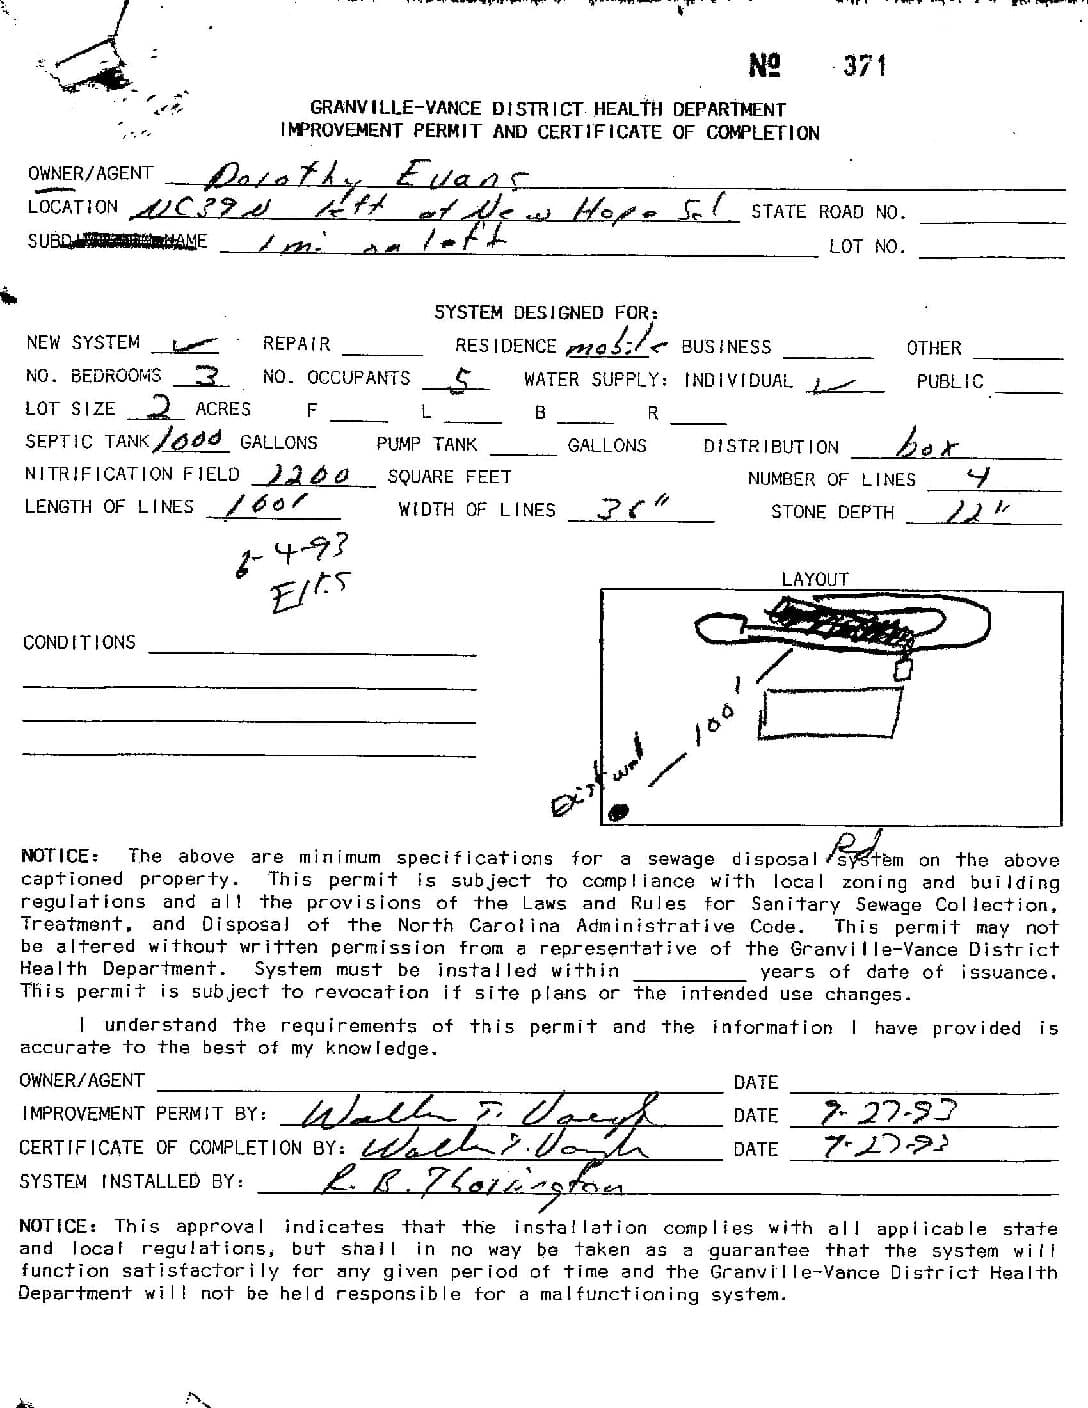 Nº 371
GRANVILLE-VANCE DISTRICT HEALTH DEPARTMENT
IMPROVEMENT PERMIT AND CERTIFICATE OF COMPLETION
OWNER/AGENT Dorothy Evans
LOCATION NC39N left at New Hope Scl STATE ROAD NO.
SUBD NAME 1 mi on left LOT NO.
SYSTEM DESIGNED FOR:
NEW SYSTEM ✓ REPAIR RESIDENCE mobile BUSINESS OTHER
NO. BEDROOMS 3 NO. OCCUPANTS 5 WATER SUPPLY: INDIVIDUAL ✓ PUBLIC
LOT SIZE 2 ACRES F L B R
SEPTIC TANK 1000 GALLONS PUMP TANK GALLONS DISTRIBUTION box
NITRIFICATION FIELD 1200 SQUARE FEET NUMBER OF LINES 4
LENGTH OF LINES 100' WIDTH OF LINES 36" STONE DEPTH 12"
6-4-93
LAYOUT
CONDITIONS
100'
Exist well
Rd
NOTICE: The above are minimum specifications for a sewage disposal system on the above
captioned property. This permit is subject to compliance with local zoning and building
regulations and all the provisions of the Laws and Rules for Sanitary Sewage Collection,
Treatment, and Disposal of the North Carolina Administrative Code. This permit may not
be altered without written permission from a representative of the Granville-Vance District
Health Department. System must be installed within years of date of issuance.
This permit is subject to revocation if site plans or the intended use changes.
I understand the requirements of this permit and the information I have provided is
accurate to the best of my knowledge.
OWNER/AGENT DATE
IMPROVEMENT PERMIT BY: Walter T. Vaugh DATE 7-27-93
CERTIFICATE OF COMPLETION BY: Walter T. Vaugh DATE 7-27-93
SYSTEM INSTALLED BY: R. B. Thorrington
NOTICE: This approval indicates that the installation complies with all applicable state
and local regulations, but shall in no way be taken as a guarantee that the system will
function satisfactorily for any given period of time and the Granville-Vance District Health
Department will not be held responsible for a malfunctioning system.